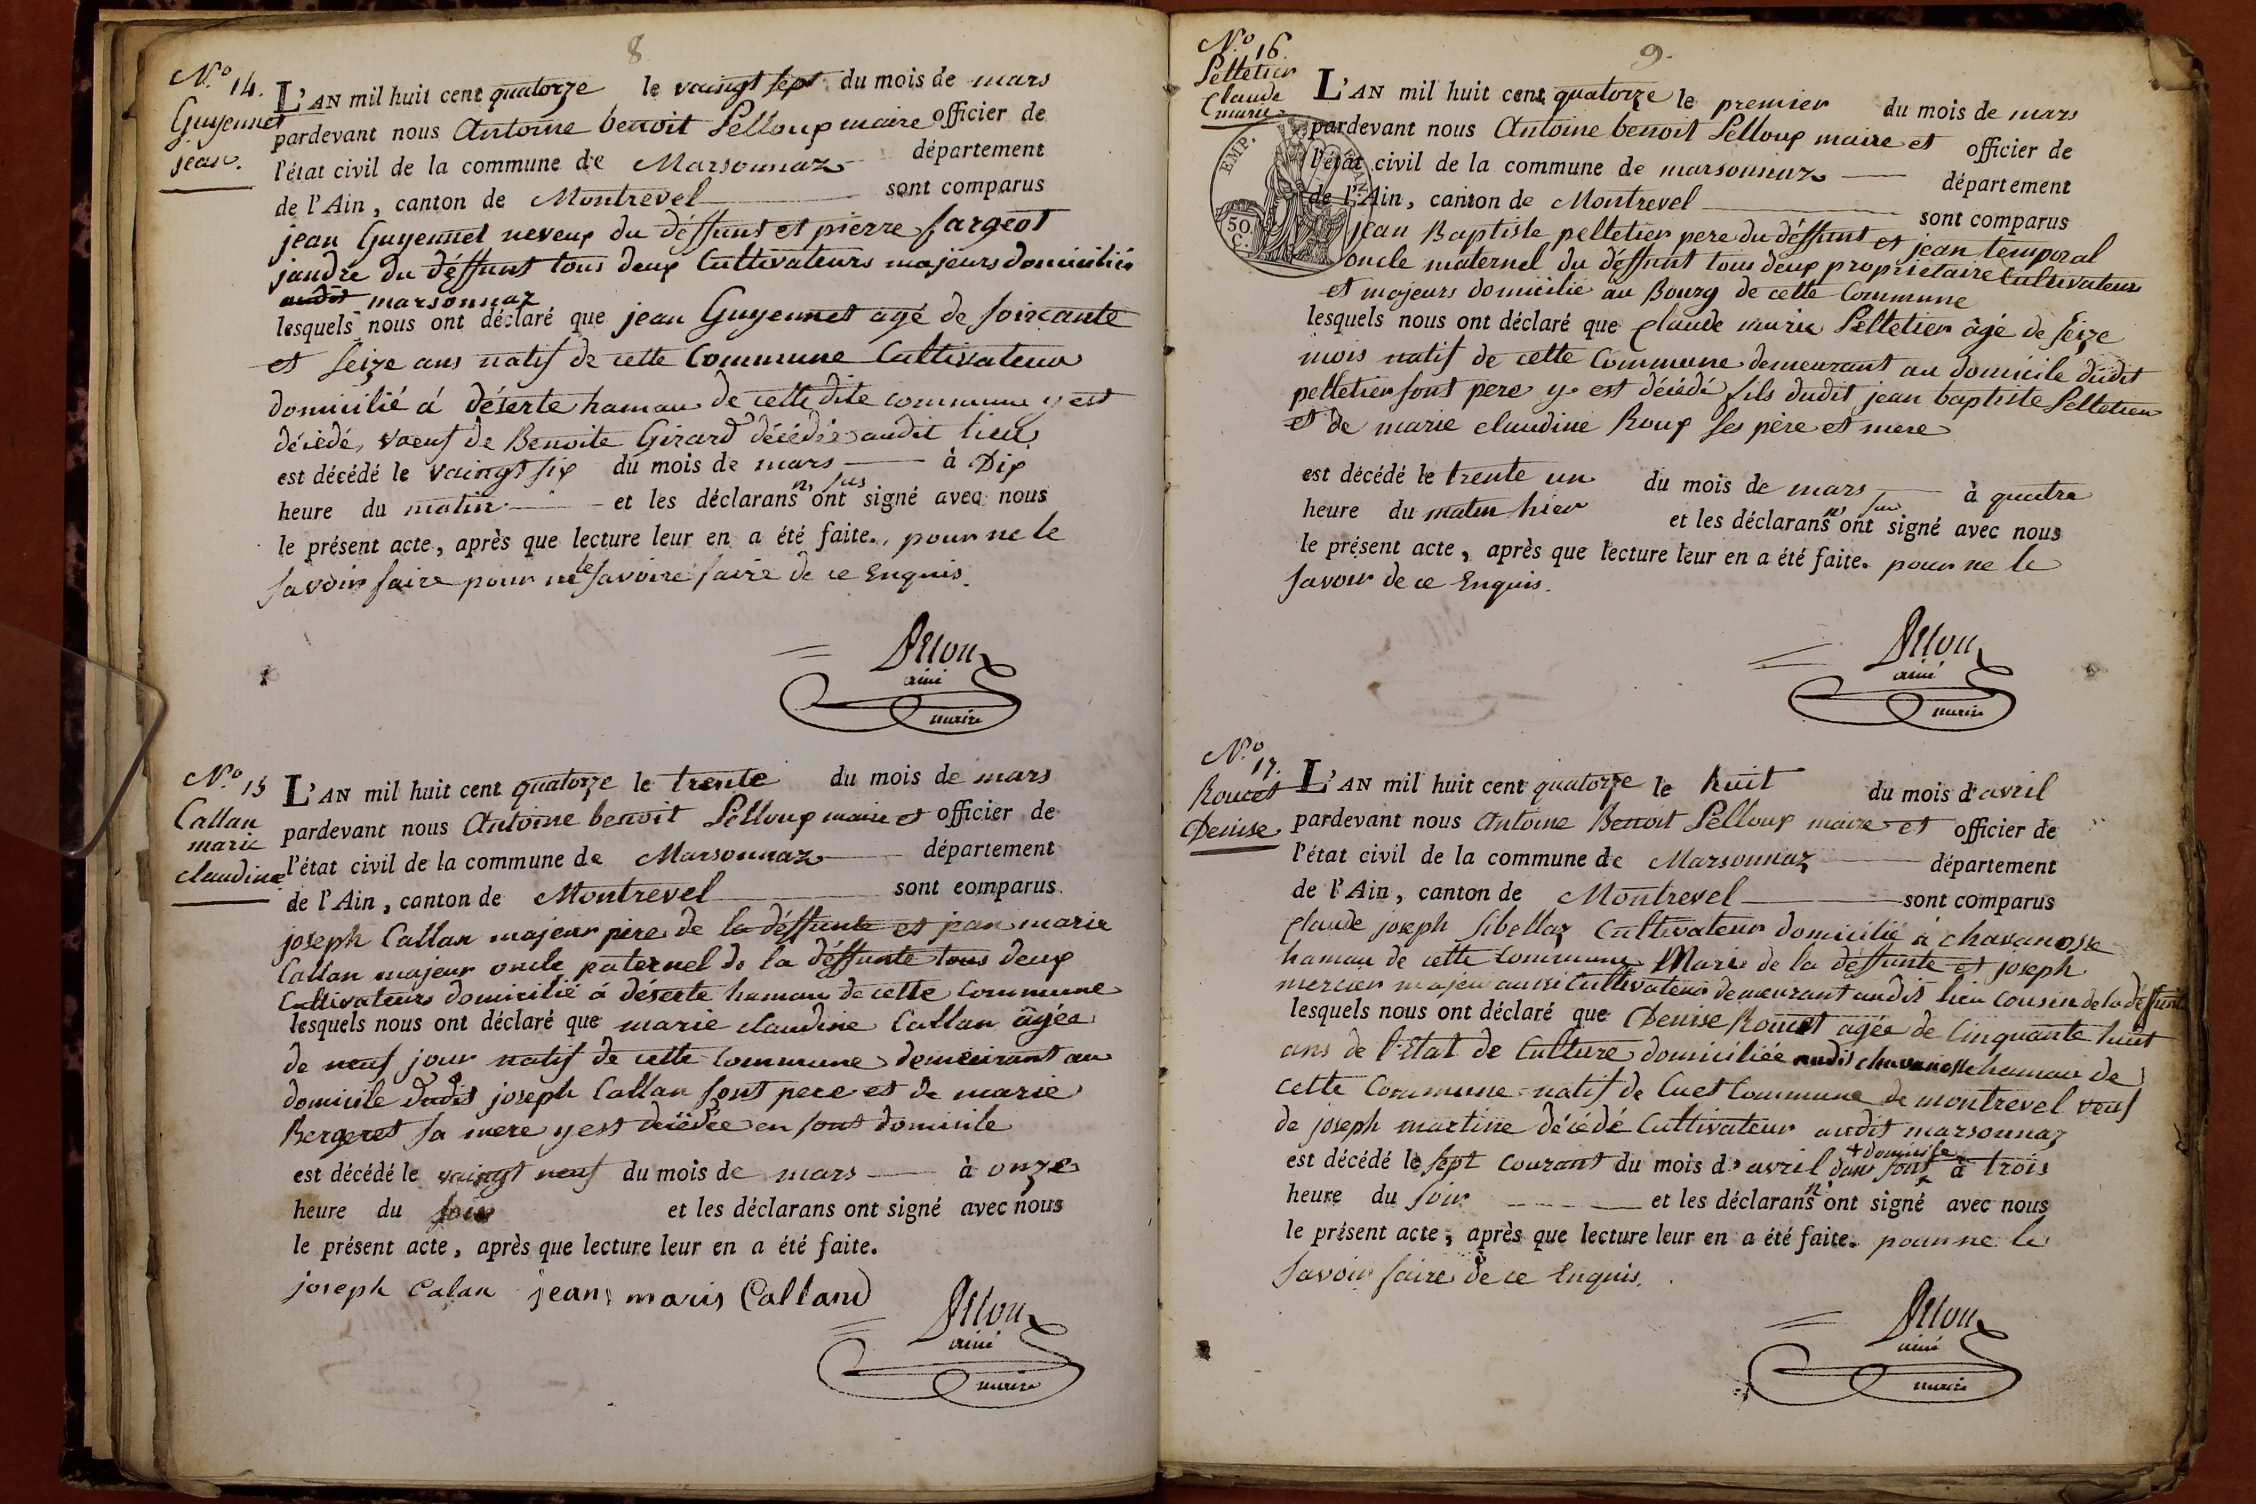 8
N.º 14.
Guyennet
jean.
L'AN mil huit cent quatorze le vaingt sept du mois de mars
pardevant nous Antoine benoit Pelloux maire officier de
l'état civil de la commune de Marsonnaz département
de l'Ain, canton de Montrevel sont comparus
jean Guyennet neveux du déffunt et pierre fargeot
jandre du déffunt tous deux Cultivateurs majeurs domiciliés
audit marsonnaz
lesquels nous ont déclaré que jean Guyennet agé de soixcante
et seize ans natif de cette Commune Cultivateur
domicilié á déserte hamau de cette dite commune y est
décédé, vaeuf de Benoite Girard décédée audit lieu
est décédé le vaingt six du mois de mars à Dix
heure du matin et les déclarans n'ont sus signé avec nous
le présent acte, après que lecture leur en a été faite. pour ne le
savoir faire pour ne le savoire faire de ce Enquis.
Pelloux
ainé
maire
N.º 15
Callan
marie
claudine
L'AN mil huit cent quatorze le trente du mois de mars
pardevant nous Antoine benoit Pelloux maire et officier de
l'état civil de la commune de Marsonnaz département
de l'Ain, canton de Montrevel sont comparus
joseph Callan majeur père de la déffunte et jean marie
Callan majeur oncle paternel de la déffunte tous deux
Cultivateurs domicilié á déserte hamau de cette Commune
lesquels nous ont déclaré que marie claudine Callan âgée
de neuf jour natif de cette Commune demeurant au
domicile dudit joseph Callan sont pere et de marie
Bergeret sa mere y est décédée en sont domicile
est décédé le vaingt neuf du mois de mars à onze
heure du soir et les déclarans ont signé avec nous
le présent acte, après que lecture leur en a été faite.
joseph Calan jean maris Calland
Pelloux
ainé
maire
9.
N.º 16
Pelletier
Claude
marie
EMP. FRAN.
50. C.
L'AN mil huit cent quatorze le premier du mois de mars
pardevant nous Antoine benoit Pelloux maire et officier de
l'état civil de la commune de marsonnaz département
de l'Ain, canton de Montrevel sont comparus
jean Baptiste pelletier pere du déffunt et jean temporal
oncle maternel du déffunt tous deux propriétaire Cultivateur
et majeurs domicilié au Bourg de cette Commune
lesquels nous ont déclaré que claude marie Pelletier âgé de seize
mois natif de cette Commune demeurant au domicile dudit
pelletier sont pere y est décédé fils dudit jean baptiste Pelletier
et de marie claudine Roux ses père et mere
est décédé le trente un du mois de mars à quatre
heure du matin hier et les déclarans n'ont sus signé avec nous
le présent acte, après que lecture leur en a été faite. pour ne le
savoir de ce Enquis.
Pelloux
ainé
maire
N.º 17.
Roucet
Denise
L'AN mil huit cent quatorze le huit du mois d'avril
pardevant nous Antoine Benoit Pelloux maire et officier de
l'état civil de la commune de Marsonnaz département
de l'Ain, canton de Montrevel sont comparus
Claude joseph Sibellaz Cultivateur domicilié à chavanosse
hamau de cette commune Mari de la déffunte et joseph
mercier majeur aussi Cultivateur demeurant audit lieu cousin de la déffunte
lesquels nous ont déclaré que Denise Roucet agée de Cinquante huit
ans de l'Etat de Culture domiciliée audit chavanosse hamau de
cette Commune natif de Cuet Commune de montrevel veuf
de joseph martine décédé Cultivateur audit marsonnaz
est décédé le sept courant du mois d'avril dans sont + domicile à trois
heure du soir et les déclarans n'ont signé avec nous
le présent acte, après que lecture leur en a été faite. pour ne le
savoir faire de ce Enquis.
Pelloux
ainé
maire